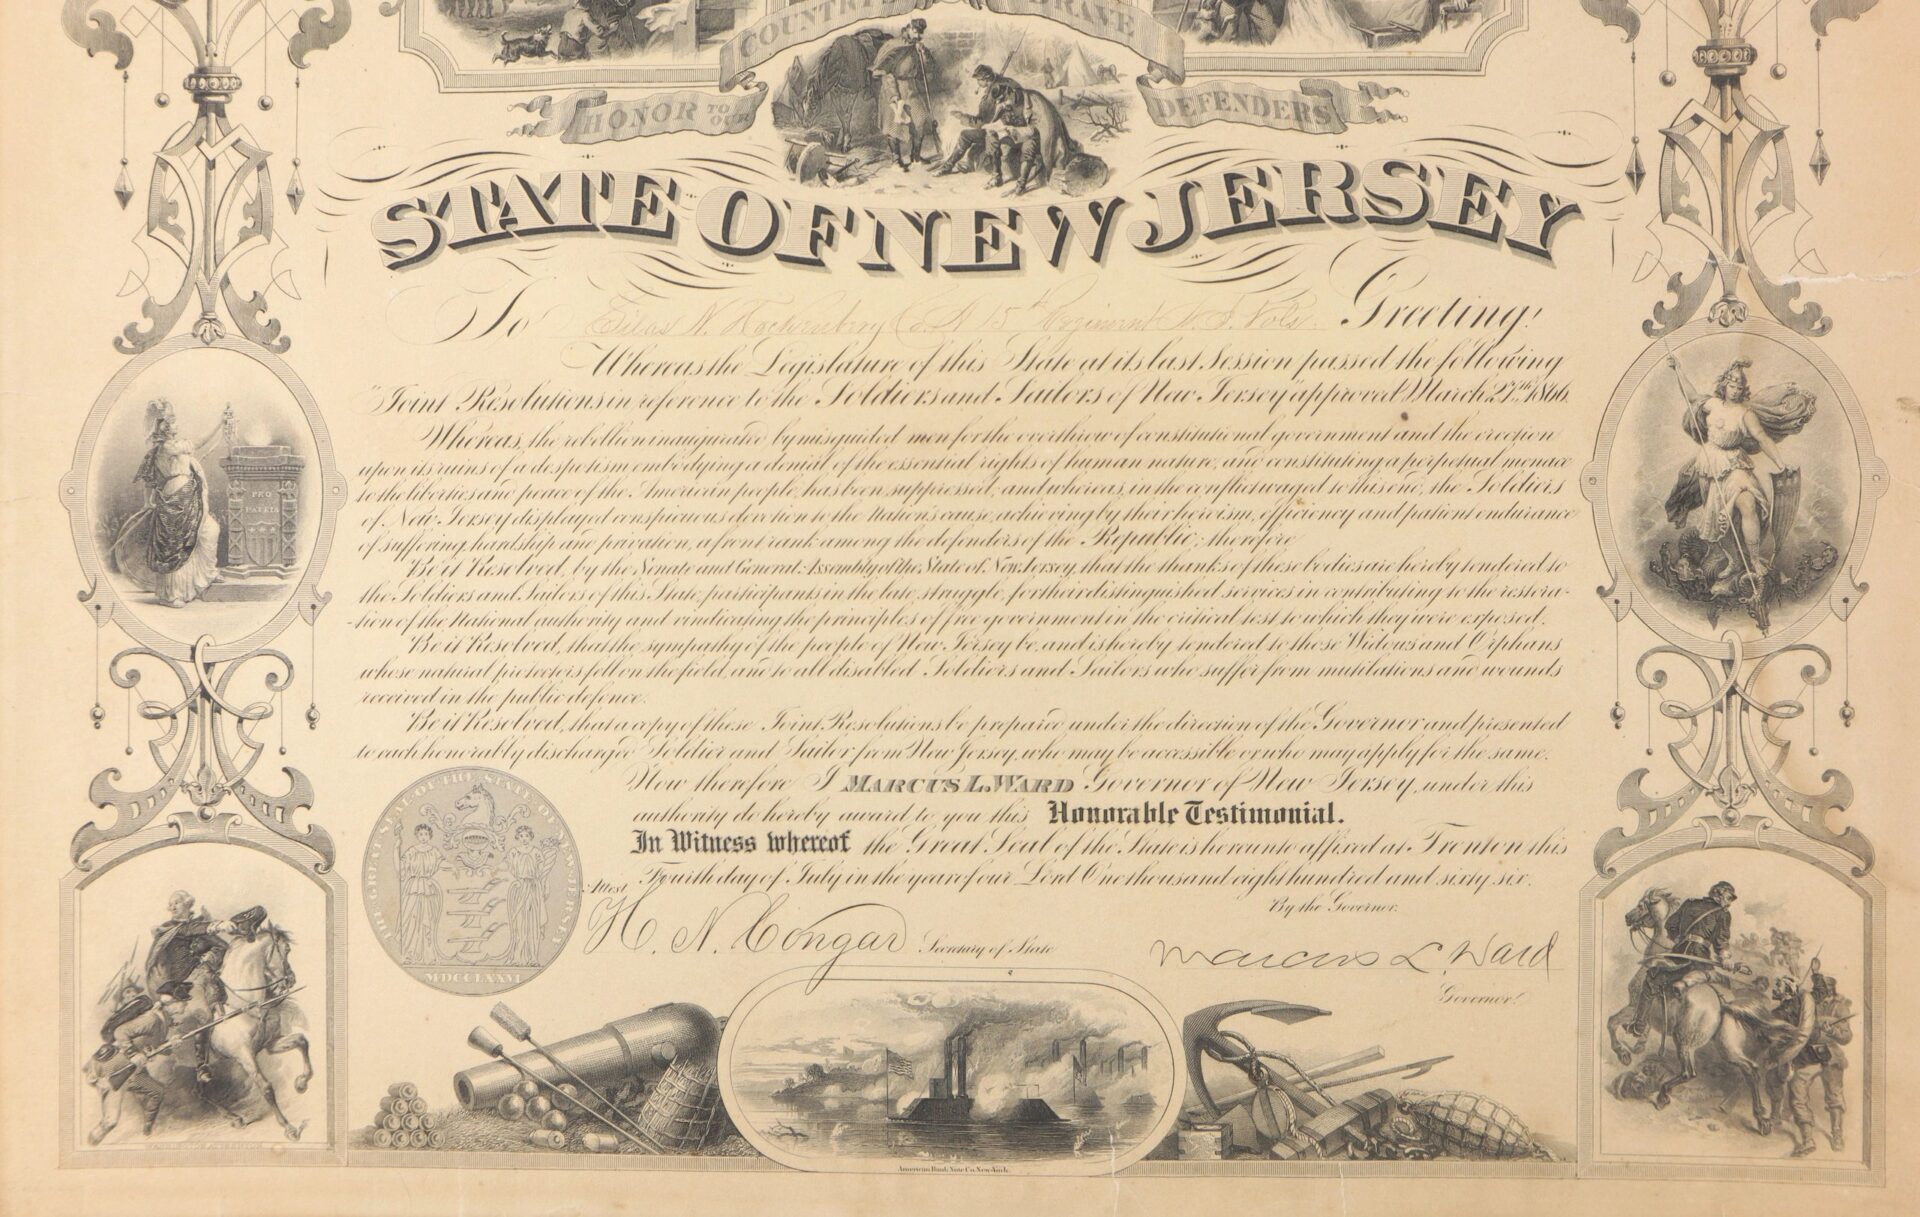 COUNTRY'S BRAVE
HONOR TO OUR DEFENDERS
STATE OF NEW JERSEY
To Silas N. Hockenbury Co. A 15th Regiment N. J. Vols. Greeting!
Whereas the Legislature of this State at its last Session passed the following
"Joint Resolutions in reference to the Soldiers and Sailors of New Jersey" approved March 27th 1866.
Whereas, the rebellion inaugurated by misguided men for the overthrow of constitutional government and the erection
upon its ruins of a despotism embodying a denial of the essential rights of human nature, and constituting a perpetual menace
to the liberties and peace of the American people, has been suppressed, and whereas, in the conflict waged to this end, the Soldiers
of New Jersey displayed conspicuous devotion to the Nation's cause, achieving by their heroism, efficiency and patient endurance
of suffering, hardship and privation, a front rank among the defenders of the Republic; therefore
Be it Resolved, by the Senate and General Assembly of the State of New Jersey, that the thanks of these bodies are hereby tendered to
the Soldiers and Sailors of this State, participants in the late struggle, for their distinguished services in contributing to the restora-
-tion of the National authority and vindicating the principles of free government in the critical test to which they were exposed.
Be it Resolved, that the sympathy of the people of New Jersey be, and is hereby tendered to those Widows and Orphans
whose natural protectors fell on the field, and to all disabled Soldiers and Sailors who suffer from mutilations and wounds
received in the public defence.
Be it Resolved, that a copy of these Joint Resolutions be prepared under the direction of the Governor and presented
to each honorably discharged Soldier and Sailor from New Jersey, who may be accessible or who may apply for the same.
Now therefore I MARCUS L. WARD Governor of New Jersey, under this
authority do hereby award to you this Honorable Testimonial.
In Witness whereof the Great Seal of the State is hereunto affixed at Trenton this
Fourth day of July in the year of our Lord One thousand eight hundred and sixty six.
Attest
By the Governor.
H. N. Congar Secretary of State
Marcus L. Ward
Governor.
PRO
PATRIA
THE GREAT SEAL OF THE STATE OF NEW JERSEY
MDCCLXXVI
American Bank Note Co. New-York.